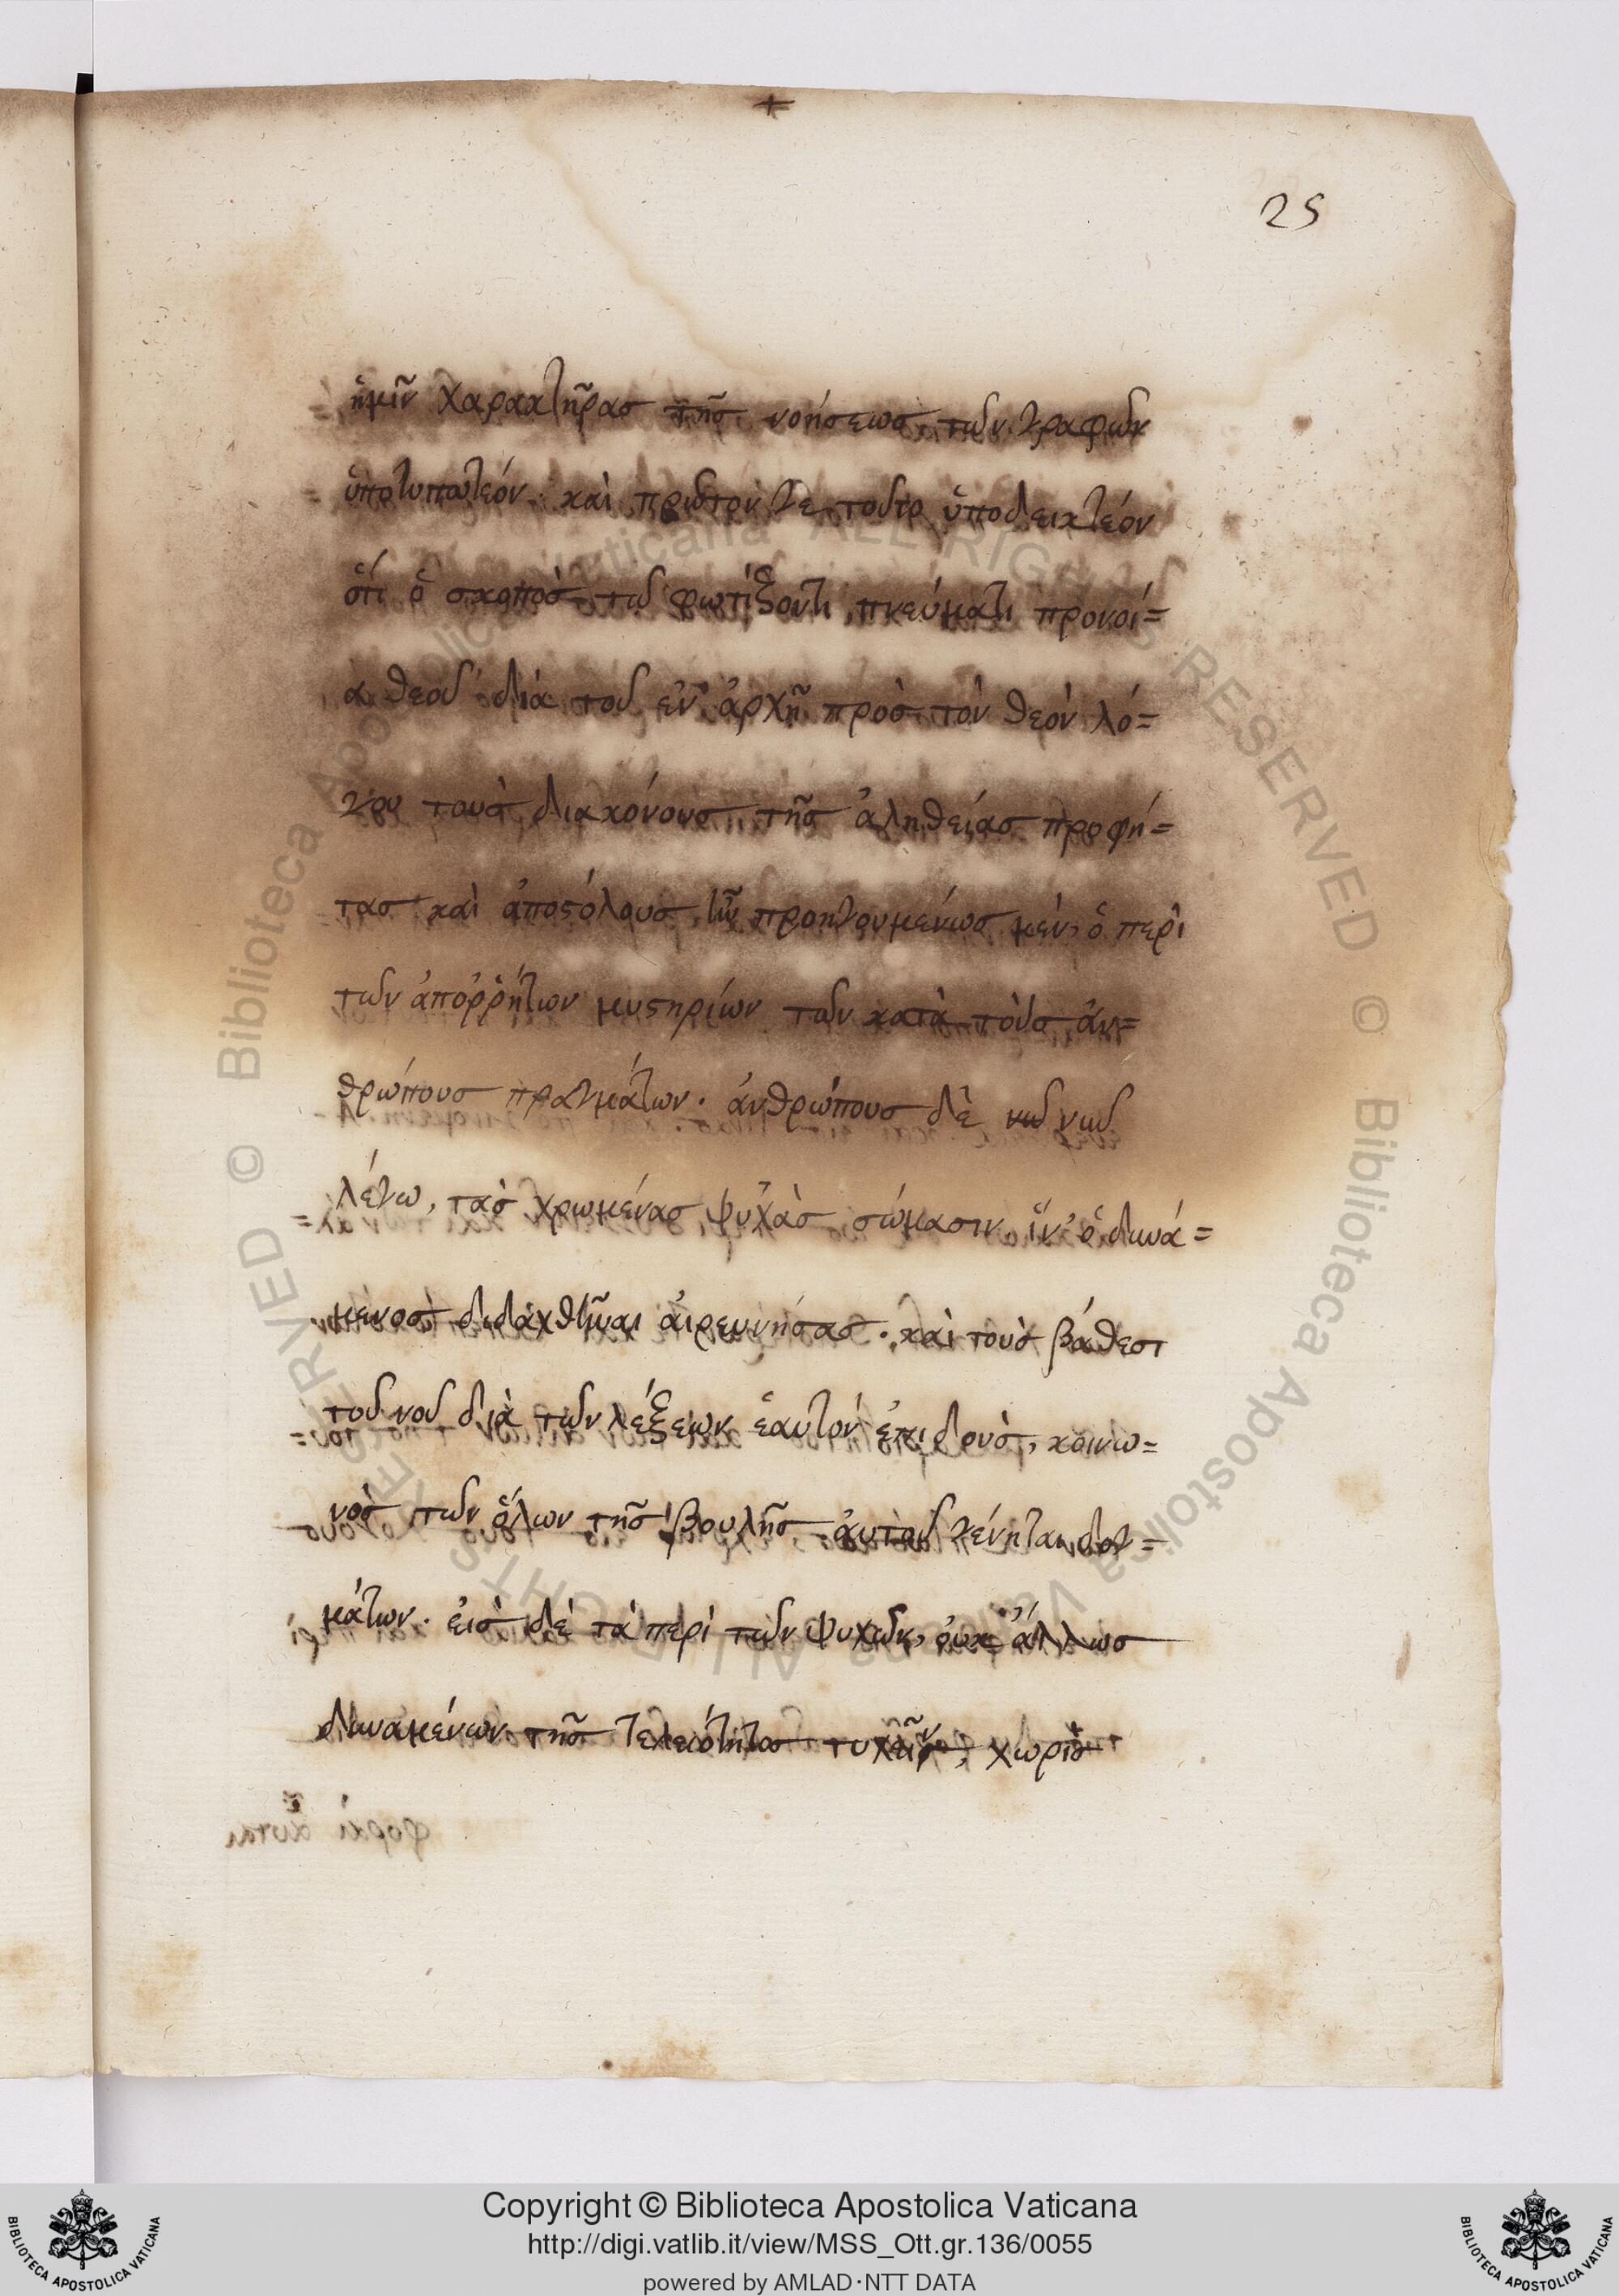 25
ἡμῖν χαρακτῆρασ τῆσ νοήσεωσ τῶν γραφῶν
ὑποτυπωτέον. καὶ πρῶτον γε τοῦτο ὑποδεικτέον
ὅτι ὁ σκοπὸσ τῶ φωτίζοντι πνεύματι προνοί=
α θεοῦ διὰ τοῦ ἐν ἀρχῆ πρὸσ τὸν θεὸν λό=
γου τουσ διακόνουσ τῆσ ἀληθείασ προφή=
τασ καὶ ἀποστόλουσ ἦν προηγουμένωσ μὲν, ὁ περὶ
τῶν ἀποῤῥήτων μυστηρίων τῶν κατὰ τοὺσ ἀν=
θρώπουσ πραγμάτων. ἀνθρώπουσ δὲ νῦν
λέγω, τὰσ χρωμένασ ψυχὰσ σώμασιν ἵν' ὁ δυνά=
μενοσ διδαχθῆναι ἀιρευνήσασ. καὶ τοὺσ βάθεσι
τοῦ νοῦ διὰ τῶν λέξεων ἑαυτὸν ἐπιδοὺσ, κοινω=
νὸσ τῶν ὅλων τῆσ βουλῆσ αὐτοῦ γένηται δογ=
μάτων. εἰσ δὲ τὰ περὶ τῶν ψυχῶν, οὐκ ἄλλωσ
δυναμένων τῆσ τελειότητοσ τυχεῖν, χωρὶσ
Copyright © Biblioteca Apostolica Vaticana
http://digi.vatlib.it/view/MSS_Ott.gr.136/0055
powered by AMLAD·NTT DATA
BIBLIOTECA APOSTOLICA VATICANA
BIBLIOTECA APOSTOLICA VATICANA